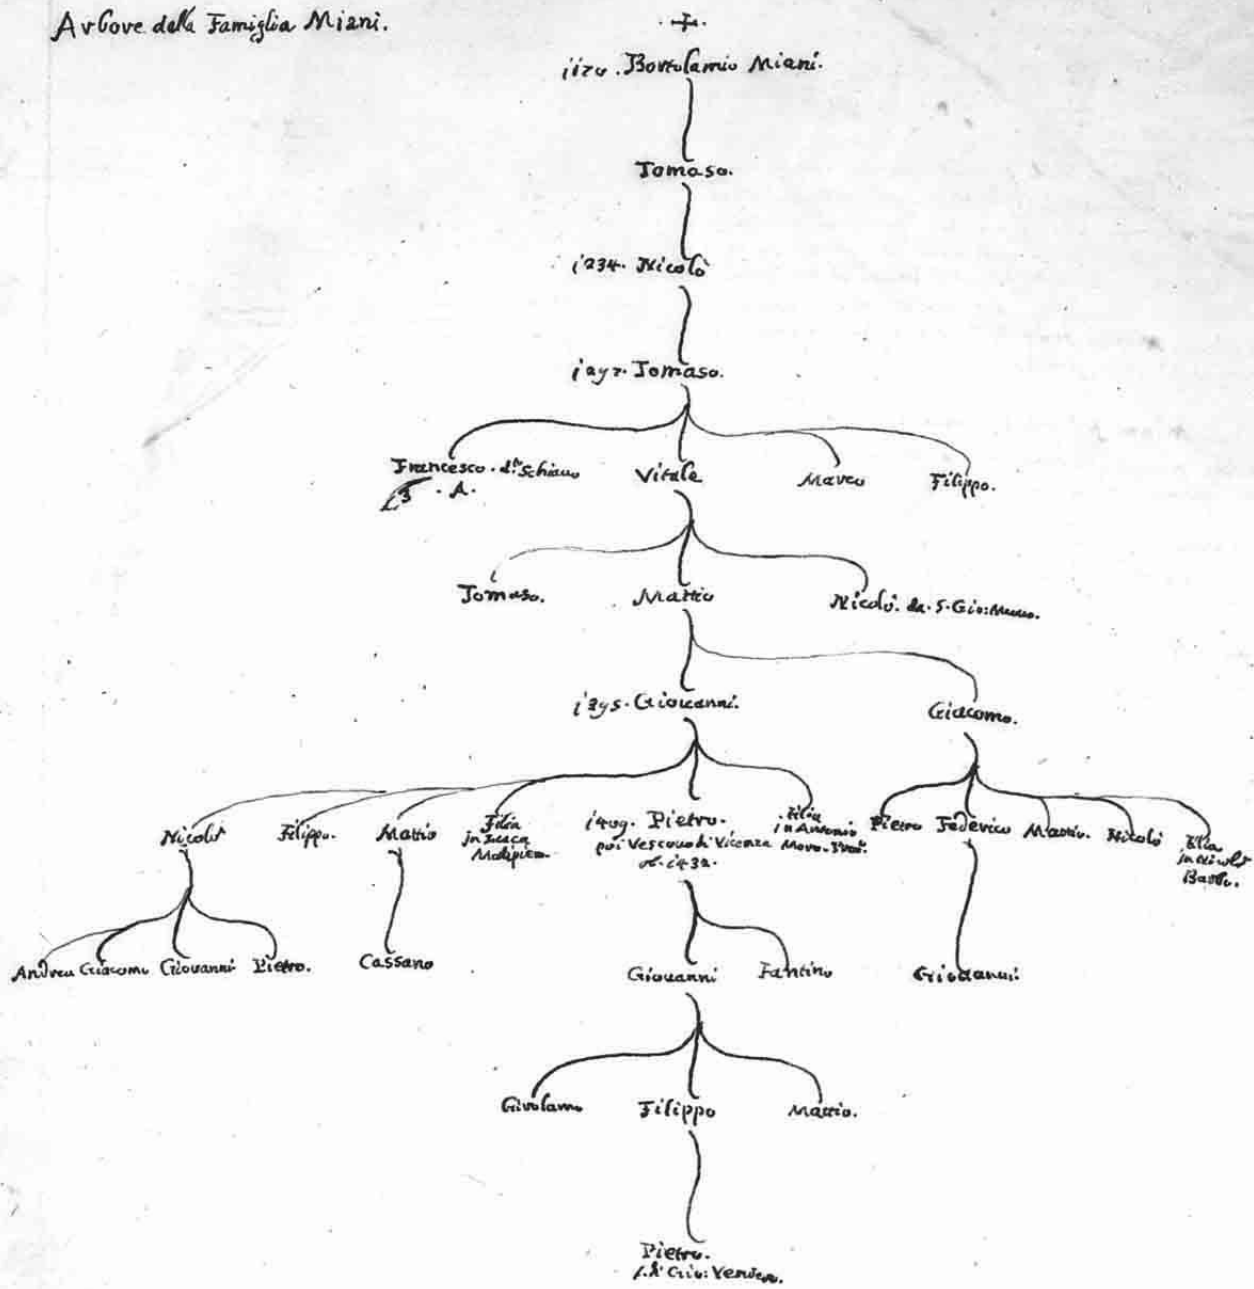 Arbore della Famiglia Miani.
1170. Bortolamio Miani.
Tomaso.
1234. Nicolò
1297. Tomaso.
Francesco. d.to Schiavo
Vitale
Marco
Filippo.
3 . A.
Tomaso.
Mattio
Nicolò. da. S. Gio:
Giovanni.
Giacomo.
Nicolò
Filippo.
Mattio
Filia
in Luca
Malipiero.
1409. Pietro.
poi Vescovo di Vicenza
ob. 1432.
Filia
in Antonio
Moro.
Pietro
Federico
Mattio.
Nicolò
Filia
in Nicolò
Barbo.
Andrea
Giacomo
Giovanni
Pietro.
Cassano
Giovanni
Fantino
Giovanni
Girolamo
Filippo
Mattio.
Pietro.
Gio: Venier.